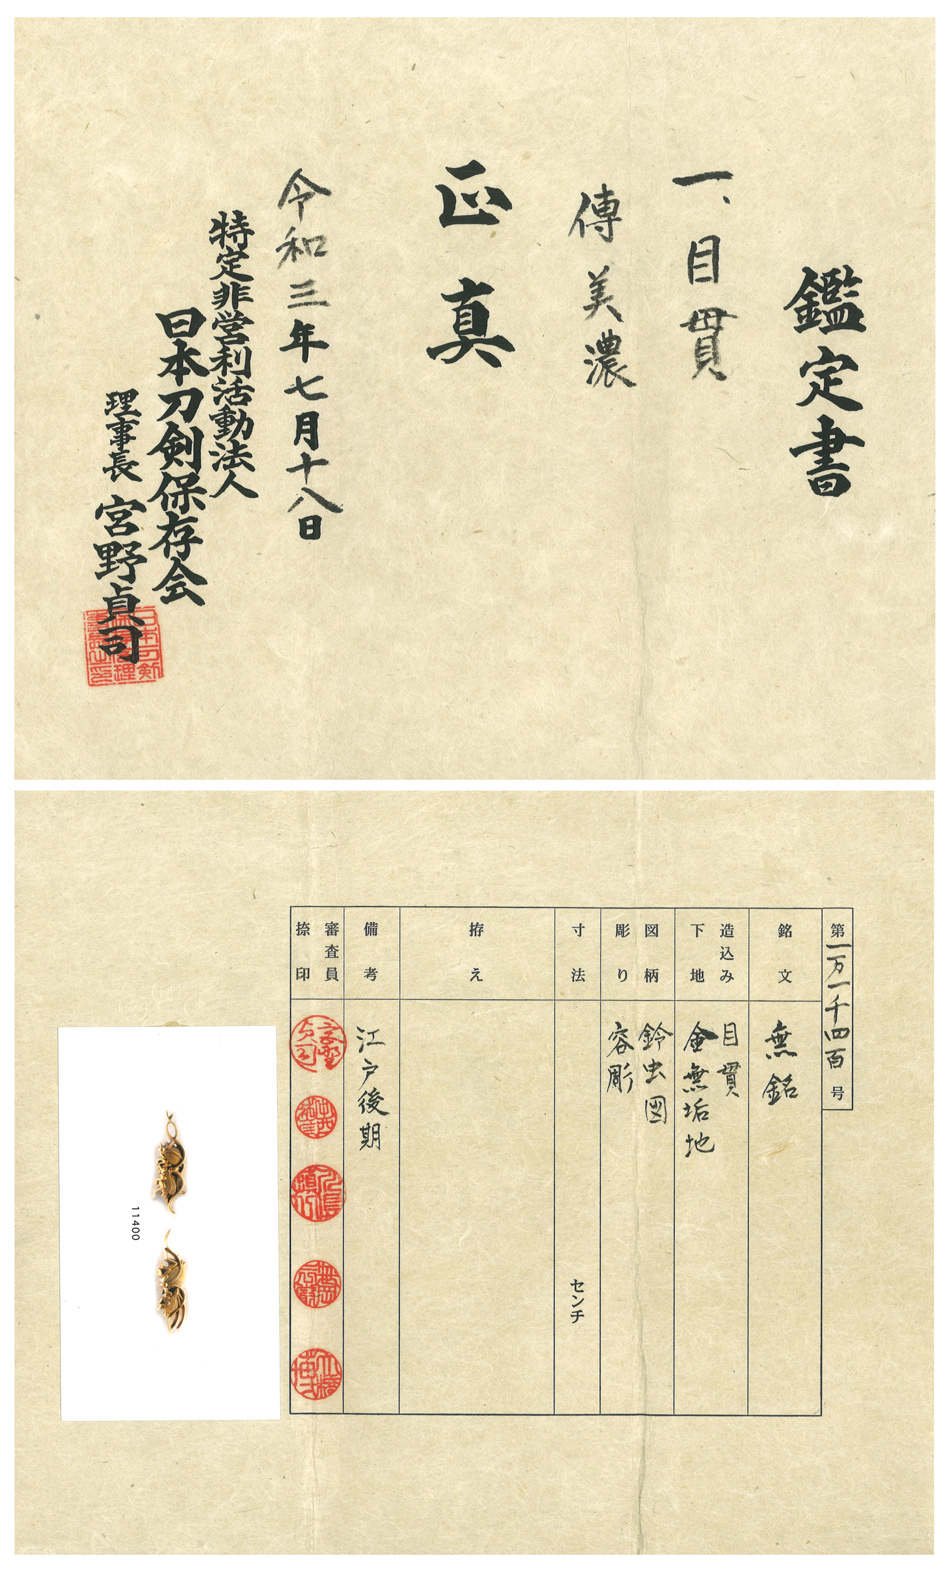 鑑定書
一、目貫
傳美濃
正真
令和三年七月十八日
特定非営利活動法人
日本刀剣保存会
理事長 宮野貞司
第一万一千四百号
銘文
無銘
造込み
下地
目貫
金無垢地
図柄
彫り
鈴虫図
容彫
寸法
センチ
拵え
備考
江戸後期
審査員
捺印
11400